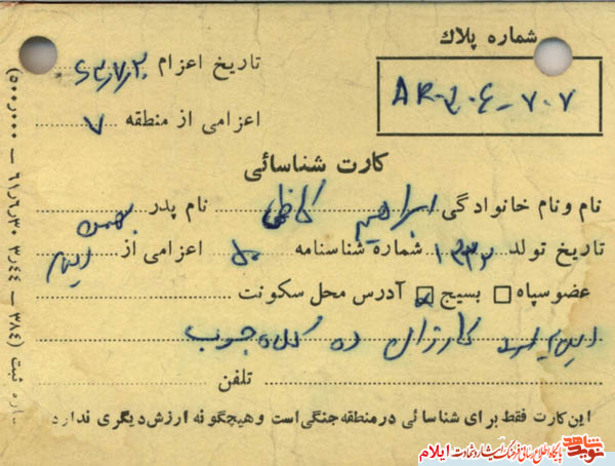 شماره پلاك
تاریخ اعزام ۶۳/۷/۲۰
AR-۲۰۴-۷۰۷
اعزامی از منطقه ۷
کارت شناسائی
نام و نام خانوادگی ابراهیم کاظمی نام پدر بهمن
تاریخ تولد ۱۳۳۲ شماره شناسنامه ۵۰ اعزامی از ایلام
عضو سپاه □ بسیج □ آدرس محل سکونت
ایلام کارزان ده کلاه چوب
تلفن
این کارت فقط برای شناسائی در منطقه جنگی است و هیچگونه ارزش دیگری ندارد
ثبت (۳۸۴ — ۳٫۴۴ — ۶۱/۶/۳۰ — ۵۰۰٫۰۰۰)
نوید شاهد پایگاه اطلاع رسانی فرهنگ ایثار و شهادت ایلام